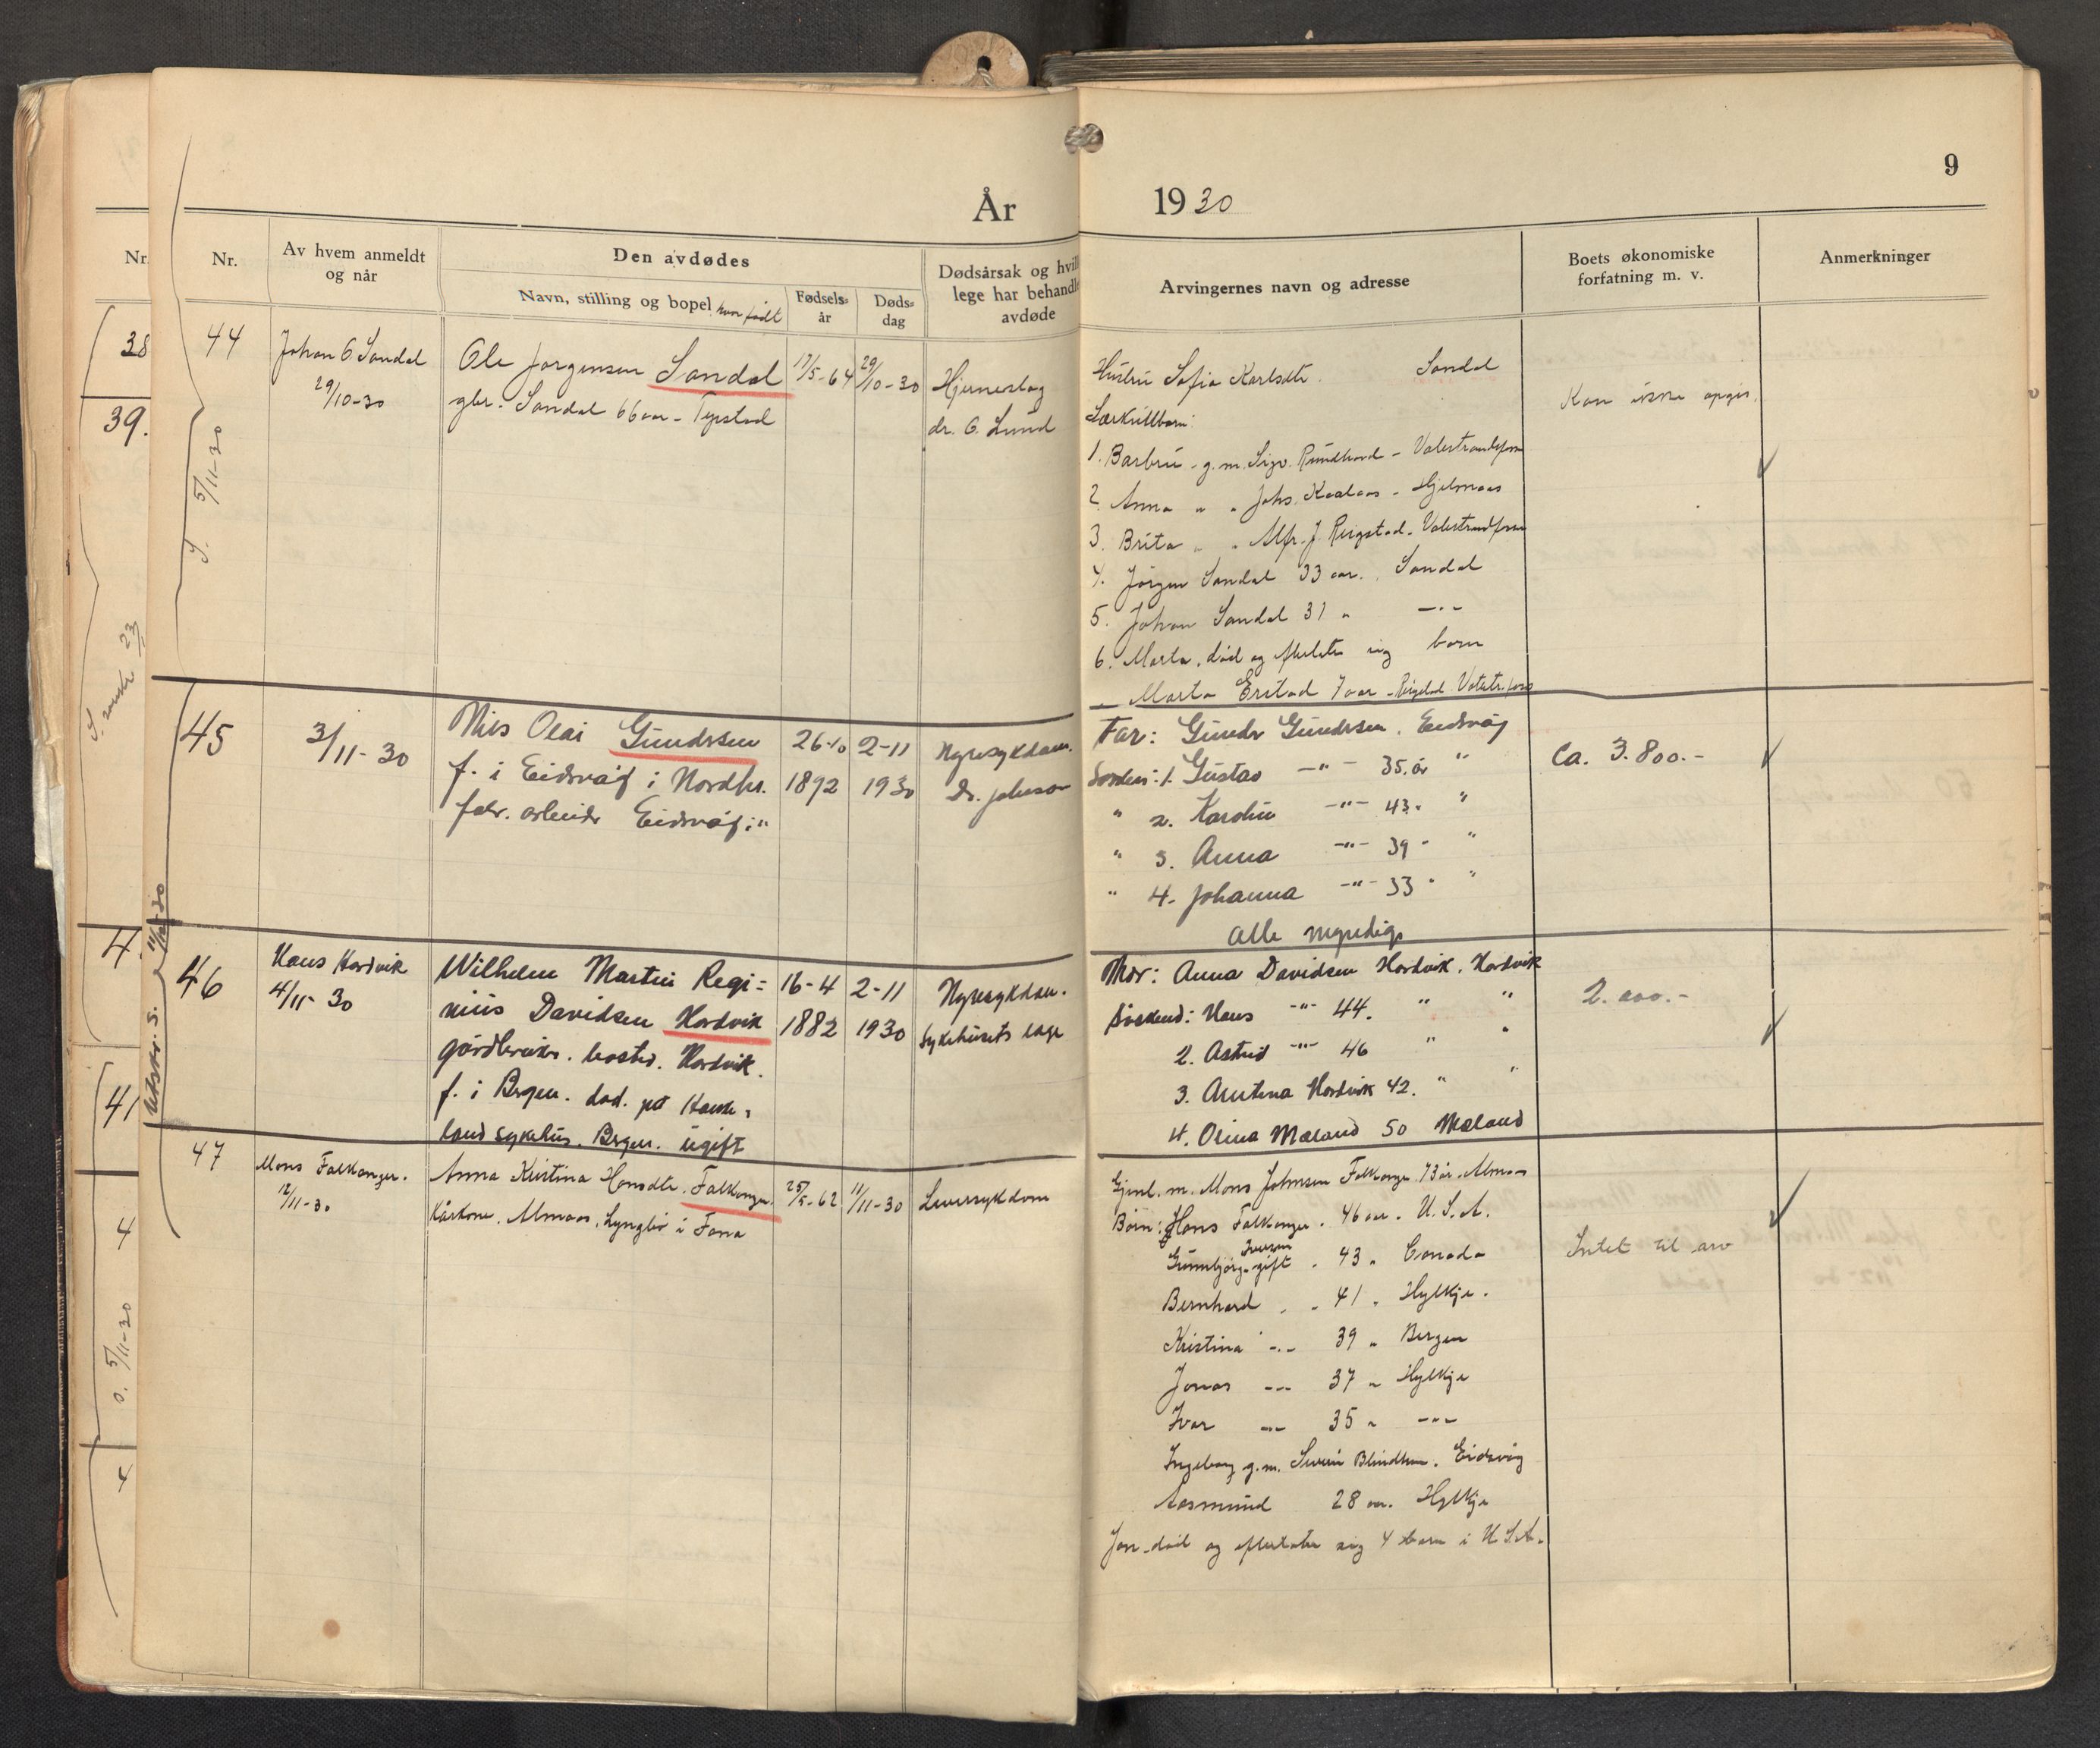 År 1930
9
Nr.
Av hvem anmeldt og når
Den avdødes
Navn, stilling og bopel. hvor født
Fødsels-år
Døds-dag
Dødsårsak og
lege har
avdøde
Arvingernes navn og adresse
Boets økonomiske forfatning m. v.
Anmerkninger
Nr.
38
39.
4
41
4
5/11-30
4
44
Johan O. Sandal
29/10-30
5/11-30
Ole Jørgensen Sandal
gbr. Sandal 66 aar
17/5-64
29/10-30
Hjerneslag
dr. O. Lund
Hustru Sofia Karlsdtr. Sandal
Særkullbarn:
1. Barbru - g.m. Sigv. Rundhovd -
2. Anna " " Johs. Kaalaas - Hjelmaas
3. Brita " " Alfr. J.
4. Jørgen Sandal 33 aar. Sandal
5. Johan Sandal 31 " -"-
6. Marta, død og efterlater sig barn
Marta Erstad 7 aar -
Kan ikke opgis.
45
3/11-30
Nils Olai Gundersen
f. i Eidsvåg i Nordhr.
fabr. arbeider Eidsvåg i "
26-10
1892
2-11
1930
Nyresykdom.
Dr. Johnson
Far: Gunder Gundersen. Eidsvåg
Søsken: 1. Gustav -"- 35. år "
" 2. Karoline -"- 43. "
" 3. Anna -"- 39 " "
" 4. Johanna -"- 33 " "
Alle myndige
Ca. 3.800.-
46
Hans Hordvik
4/11-30
Utskr. S. 11/12-30
Wilhelm Martin Regi=
nius Davidsen Hordvik
gårdbruker. bosted. Hordvik.
f. i Bergen. død. på Hauke=
land sykehus. Bergen. ugift
16-4
1882
2-11
1930
Nyresykdom.
Sykehusets læge
Mor: Anna Davidsen Hordvik. Hordvik
Søskend: Hans -"- 44. " "
2. Astrid -"- 46 " "
3. Hordvik 42. " "
4. Mæland 50 Mæland
2.000.-
47
Mons Falkanger.
12/11-30
Anna Kristina Hansdtr. Falkanger.
Kårkone. Almaas.
i Fana
25/5-62
11/11-30
Leversykdom
Gjenl. m. Mons Johnsen Falkanger 73 år. Almaas
Børn: Hans Falkanger. 46 aar. U.S.A.
Iversen
Gunnbjørg gift " 43 " Canada
Bernhard " " 41 " Hylkje.
Kristina -"- 39 " Bergen
Jonas -"- 37 " Hylkje
Ivar -"- 35 " -"-
Ingeborg g.m. Blindheim. Eidsvåg
Aasmund 28 aar. Hylkje
Jon - død og efterlater sig 4 barn i U.S.A.
Intet til arv